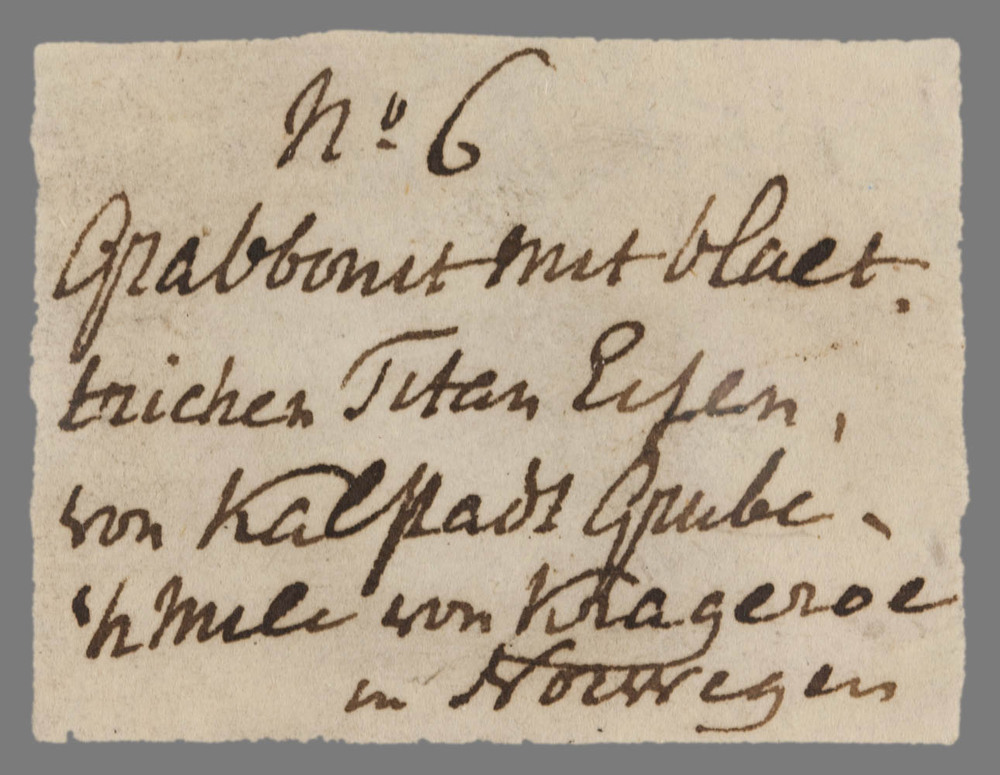 No 6
Grabbonit mit blaet.
trichen Titan Eisen,
von Kalstadt Grube
Meile von Krageroe
in Norwegen